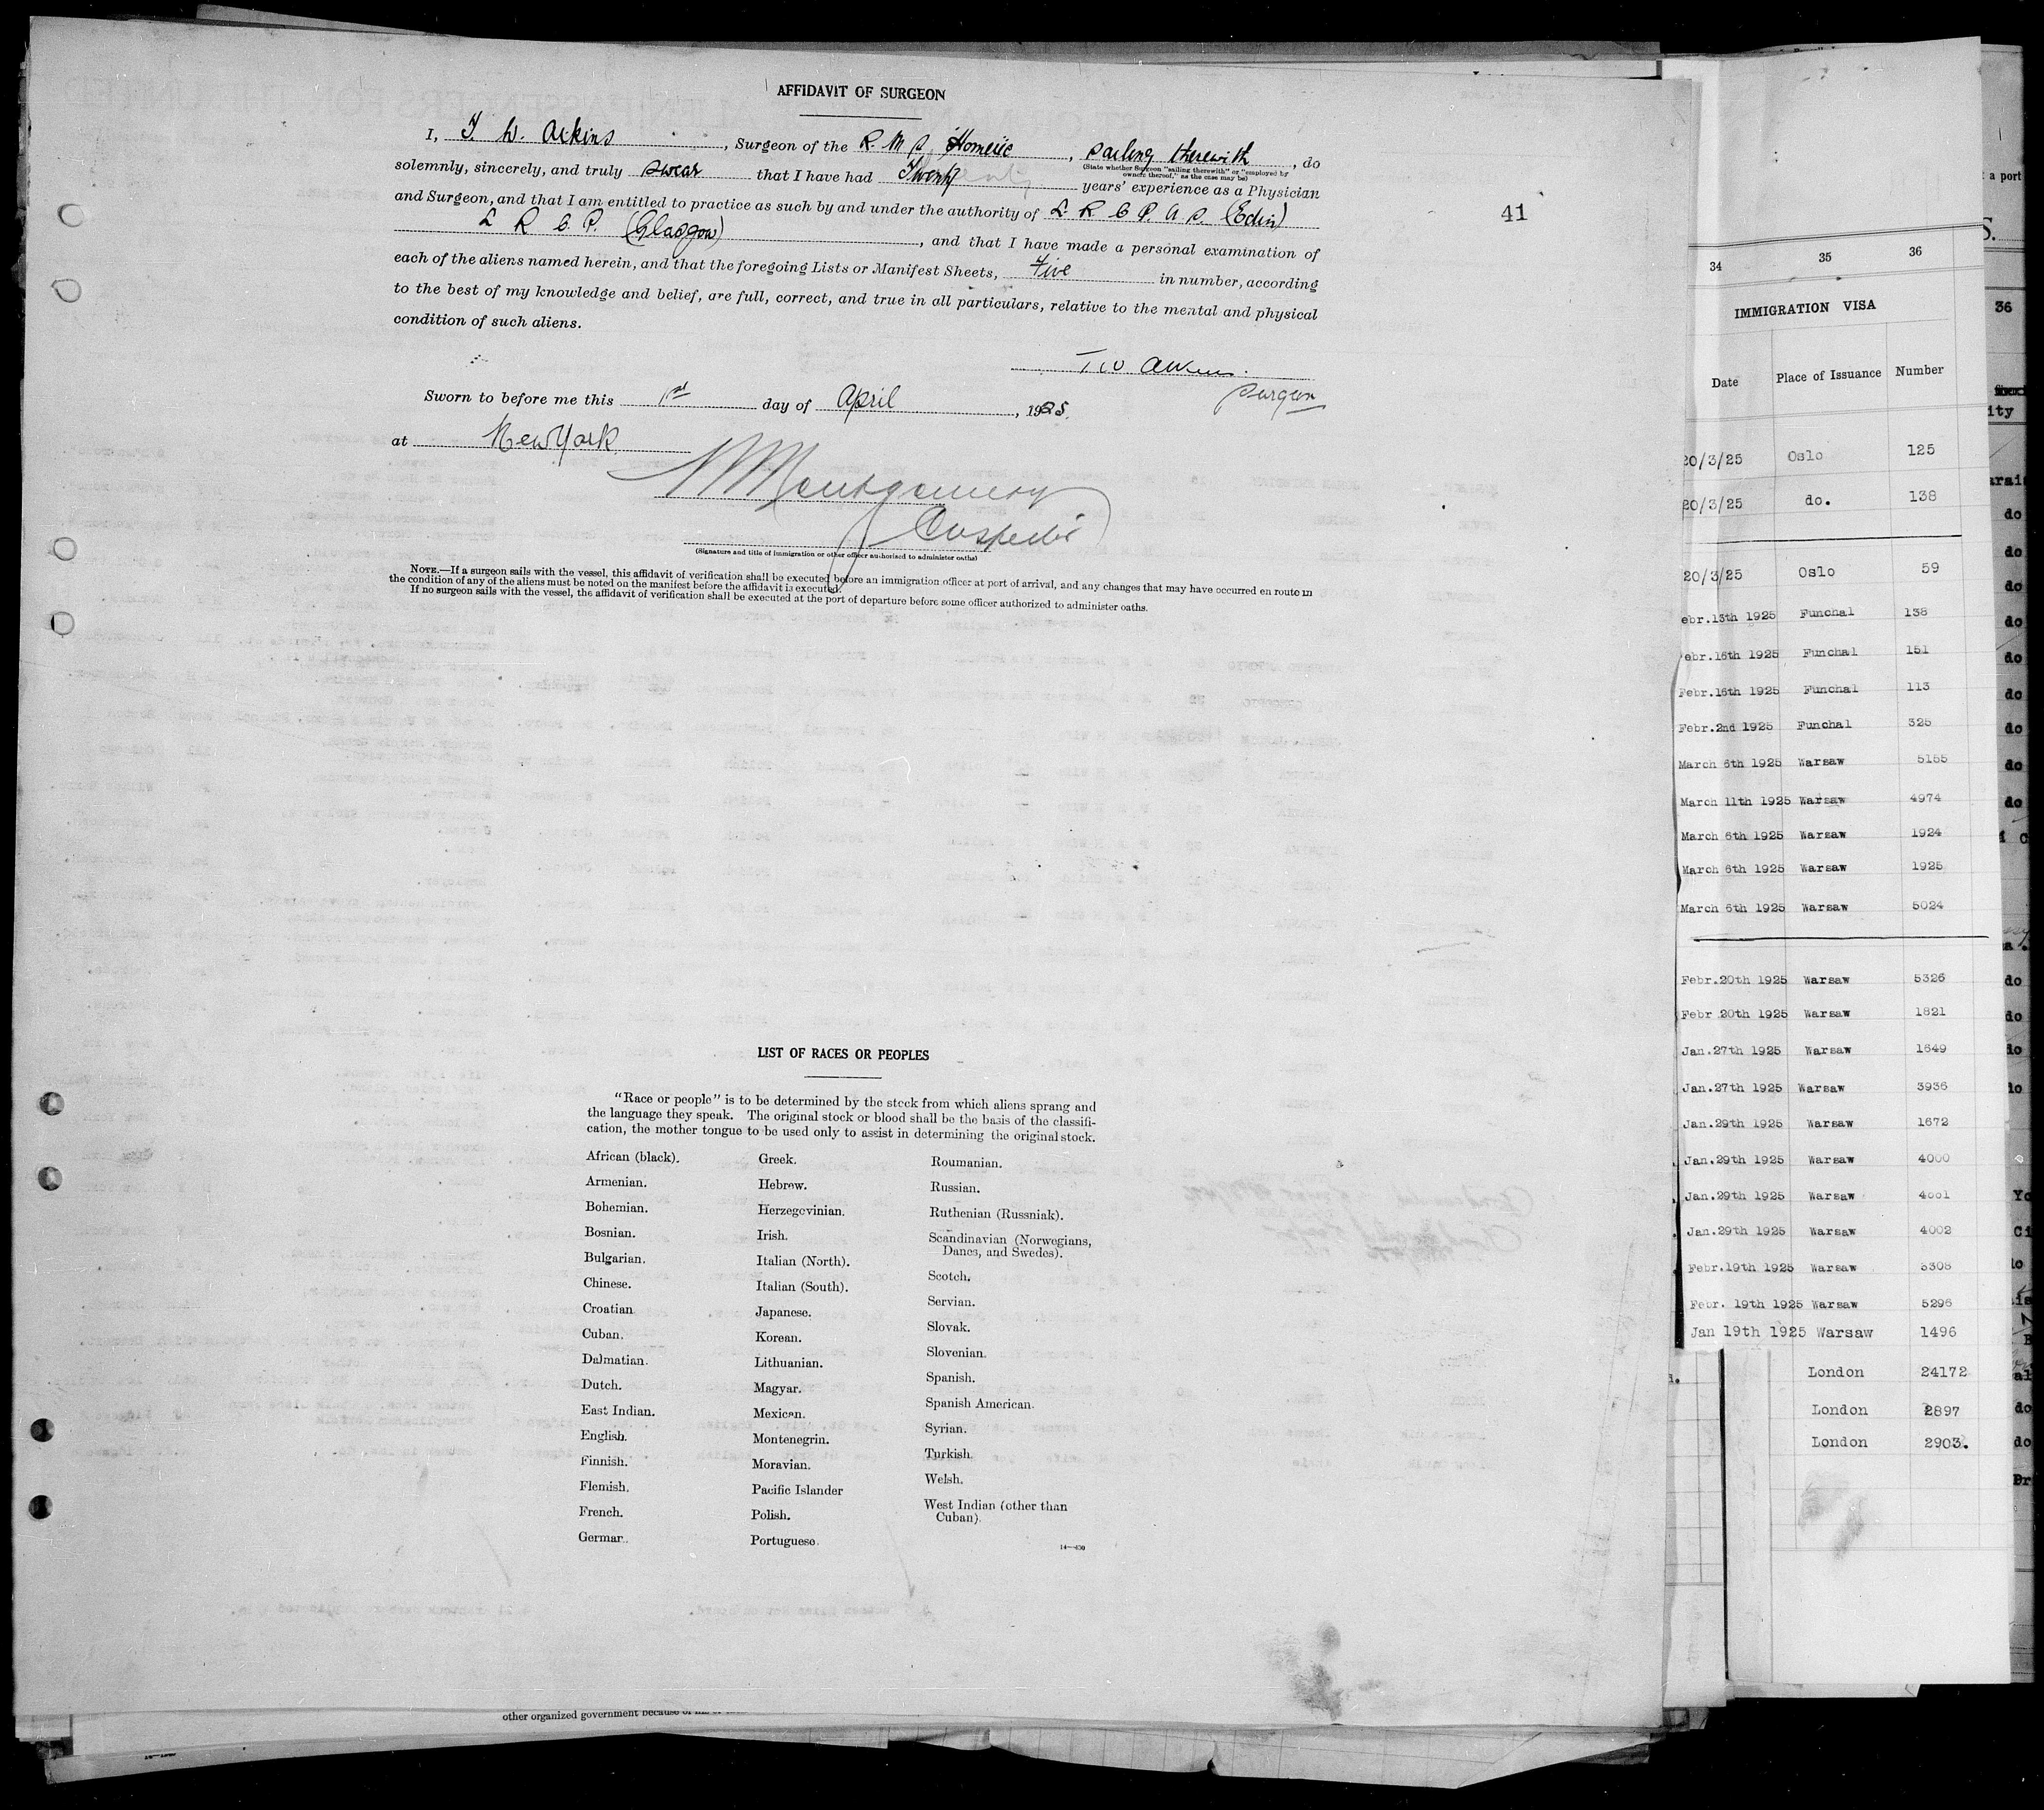 AFFIDAVIT OF SURGEON
I, T. W. Aikins, Surgeon of the R. M. S. Homeric, sailing therewith, do
(State whether Surgeon "sailing therewith" or "employed by
owners thereof," as the case may be)
solemnly, sincerely, and truly swear that I have had Twenty years' experience as a Physician
and Surgeon, and that I am entitled to practice as such by and under the authority of L. R. C. P. & S. (Edin)
L R C. P. (Glasgow), and that I have made a personal examination of
each of the aliens named herein, and that the foregoing Lists or Manifest Sheets, Five in number, according
to the best of my knowledge and belief, are full, correct, and true in all particulars, relative to the mental and physical
condition of such aliens.
41
T W Aikins.
Surgeon
Sworn to before me this 1st day of April, 1925.
at New York
Montgomery
Inspector
(Signature and title of immigration or other officer authorized to administer oaths)
NOTE.—If a surgeon sails with the vessel, this affidavit of verification shall be executed before an immigration officer at port of arrival, and any changes that may have occurred en route in
the condition of any of the aliens must be noted on the manifest before the affidavit is executed.
If no surgeon sails with the vessel, the affidavit of verification shall be executed at the port of departure before some officer authorized to administer oaths.
LIST OF RACES OR PEOPLES
"Race or people" is to be determined by the stock from which aliens sprang and
the language they speak. The original stock or blood shall be the basis of the classifi-
cation, the mother tongue to be used only to assist in determining the original stock.
African (black).
Armenian.
Bohemian.
Bosnian.
Bulgarian.
Chinese.
Croatian
Cuban.
Dalmatian.
Dutch.
East Indian.
English.
Finnish.
Flemish.
French.
German.
Greek.
Hebrew.
Herzegovinian.
Irish.
Italian (North).
Italian (South).
Japanese.
Korean.
Lithuanian.
Magyar.
Mexican.
Montenegrin.
Moravian.
Pacific Islander
Polish.
Portuguese.
Roumanian.
Russian.
Ruthenian (Russniak).
Scandinavian (Norwegians,
Danes, and Swedes).
Scotch.
Servian.
Slovak.
Slovenian.
Spanish.
Spanish American.
Syrian.
Turkish.
Welsh.
West Indian (other than
Cuban).
14—430
other organized government because of
34 35 36
IMMIGRATION VISA
Date Place of Issuance Number
20/3/25 Oslo 125
20/3/25 do. 138
20/3/25 Oslo 59
ebr.13th 1925 Funchal 138
ebr.16th 1925 Funchal 151
Febr.16th 1925 Funchal 113
Febr.2nd 1925 Funchal 325
March 6th 1925 Warsaw 5155
March 11th 1925 Warsaw 4974
March 6th 1925 Warsaw 1924
March 6th 1925 Warsaw 1925
March 6th 1925 Warsaw 5024
Febr.20th 1925 Warsaw 5326
Febr 20th 1925 Warsaw 1821
Jan.27th 1925 Warsaw 1649
Jan.27th 1925 Warsaw 3936
Jan.29th 1925 Warsaw 1672
Jan.29th 1925 Warsaw 4000
Jan.29th 1925 Warsaw 4001
Jan.29th 1925 Warsaw 4002
Febr.19th 1925 Warsaw 5305
Febr. 19th 1925 Warsaw 5296
Jan 19th 1925 Warsaw 1496
London 24172
London 2897
London 2903.
a port
36
ity
do
do
do
do
do
do
do
do
do
do
do
do
do
do